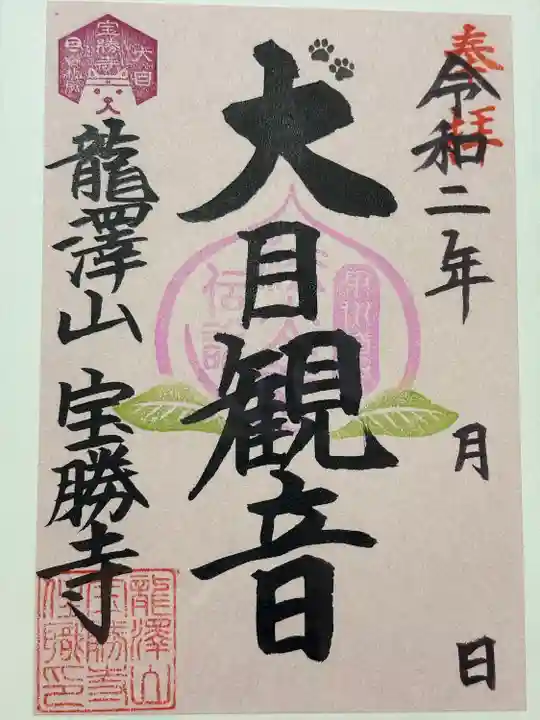 奉拝
令和二年 月 日
犬目観音
龍澤山 宝勝寺
宝勝寺
犬目
龍澤山
宝勝寺
住職印